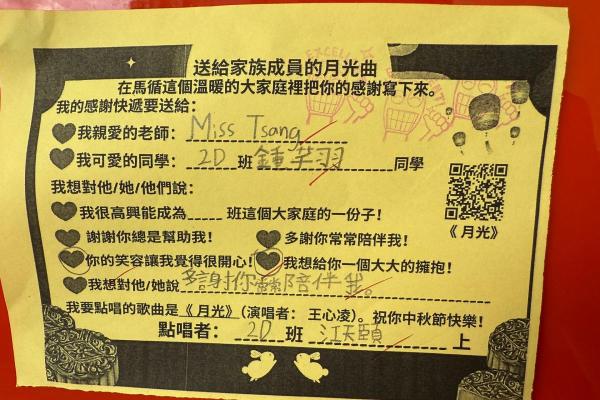 送給家族成員的月光曲
在馬循這個溫暖的大家庭裡把你的感謝寫下來。
我的感謝快遞要送給：
我親愛的老師： Miss Tsang
我可愛的同學： 2D 班 鍾芊羽 同學
我想對他/她/他們說：
我很高興能成為_____ 班這個大家庭的一份子！
謝謝你總是幫助我！ 多謝你常常陪伴我！
你的笑容讓我覺得很開心！ 我想給你一個大大的擁抱！
我想對他/她說 多謝你常常陪伴我。
我要點唱的歌曲是《月光》(演唱者： 王心凌)。祝你中秋節快樂！
點唱者： 2D 班 江天頤 上
《月光》
EXCELLENT